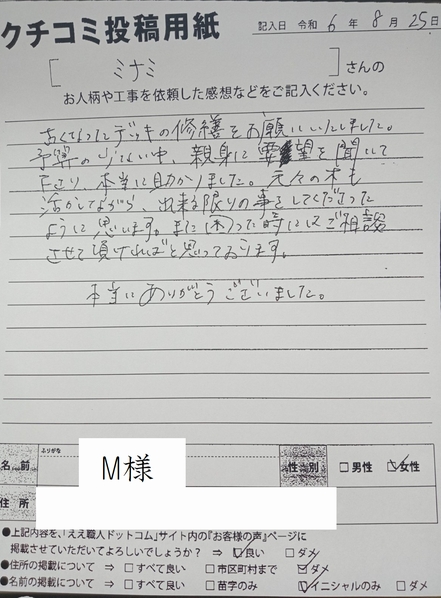 クチコミ投稿用紙
記入日 令和 6 年 8 月 25 日
[ ミナミ ] さんの
お人柄や工事を依頼した感想などをご記入ください。
古くなったデッキの修繕をお願いいたしました。
予算の少ない中、親身に要望を聞いて
下さり、本当に助かりました。元々の木も
活かしてながら、出来る限りの事をしてくださった
ように思います。また困った時にはご相談
させて頂ければと思っております。
本当にありがとうございました。
ふりがな
名前 M様 性別 □男性 ☑女性
住所
●上記内容を、「ええ職人ドットコム」サイト内の『お客様の声』ページに
掲載させていただいてよろしいでしょうか? ⇒ ☑良い □ダメ
●住所の掲載について ⇒ □すべて良い □市区町村まで ☑ダメ
●名前の掲載について ⇒ □すべて良い □苗字のみ ☑イニシャルのみ □ダメ